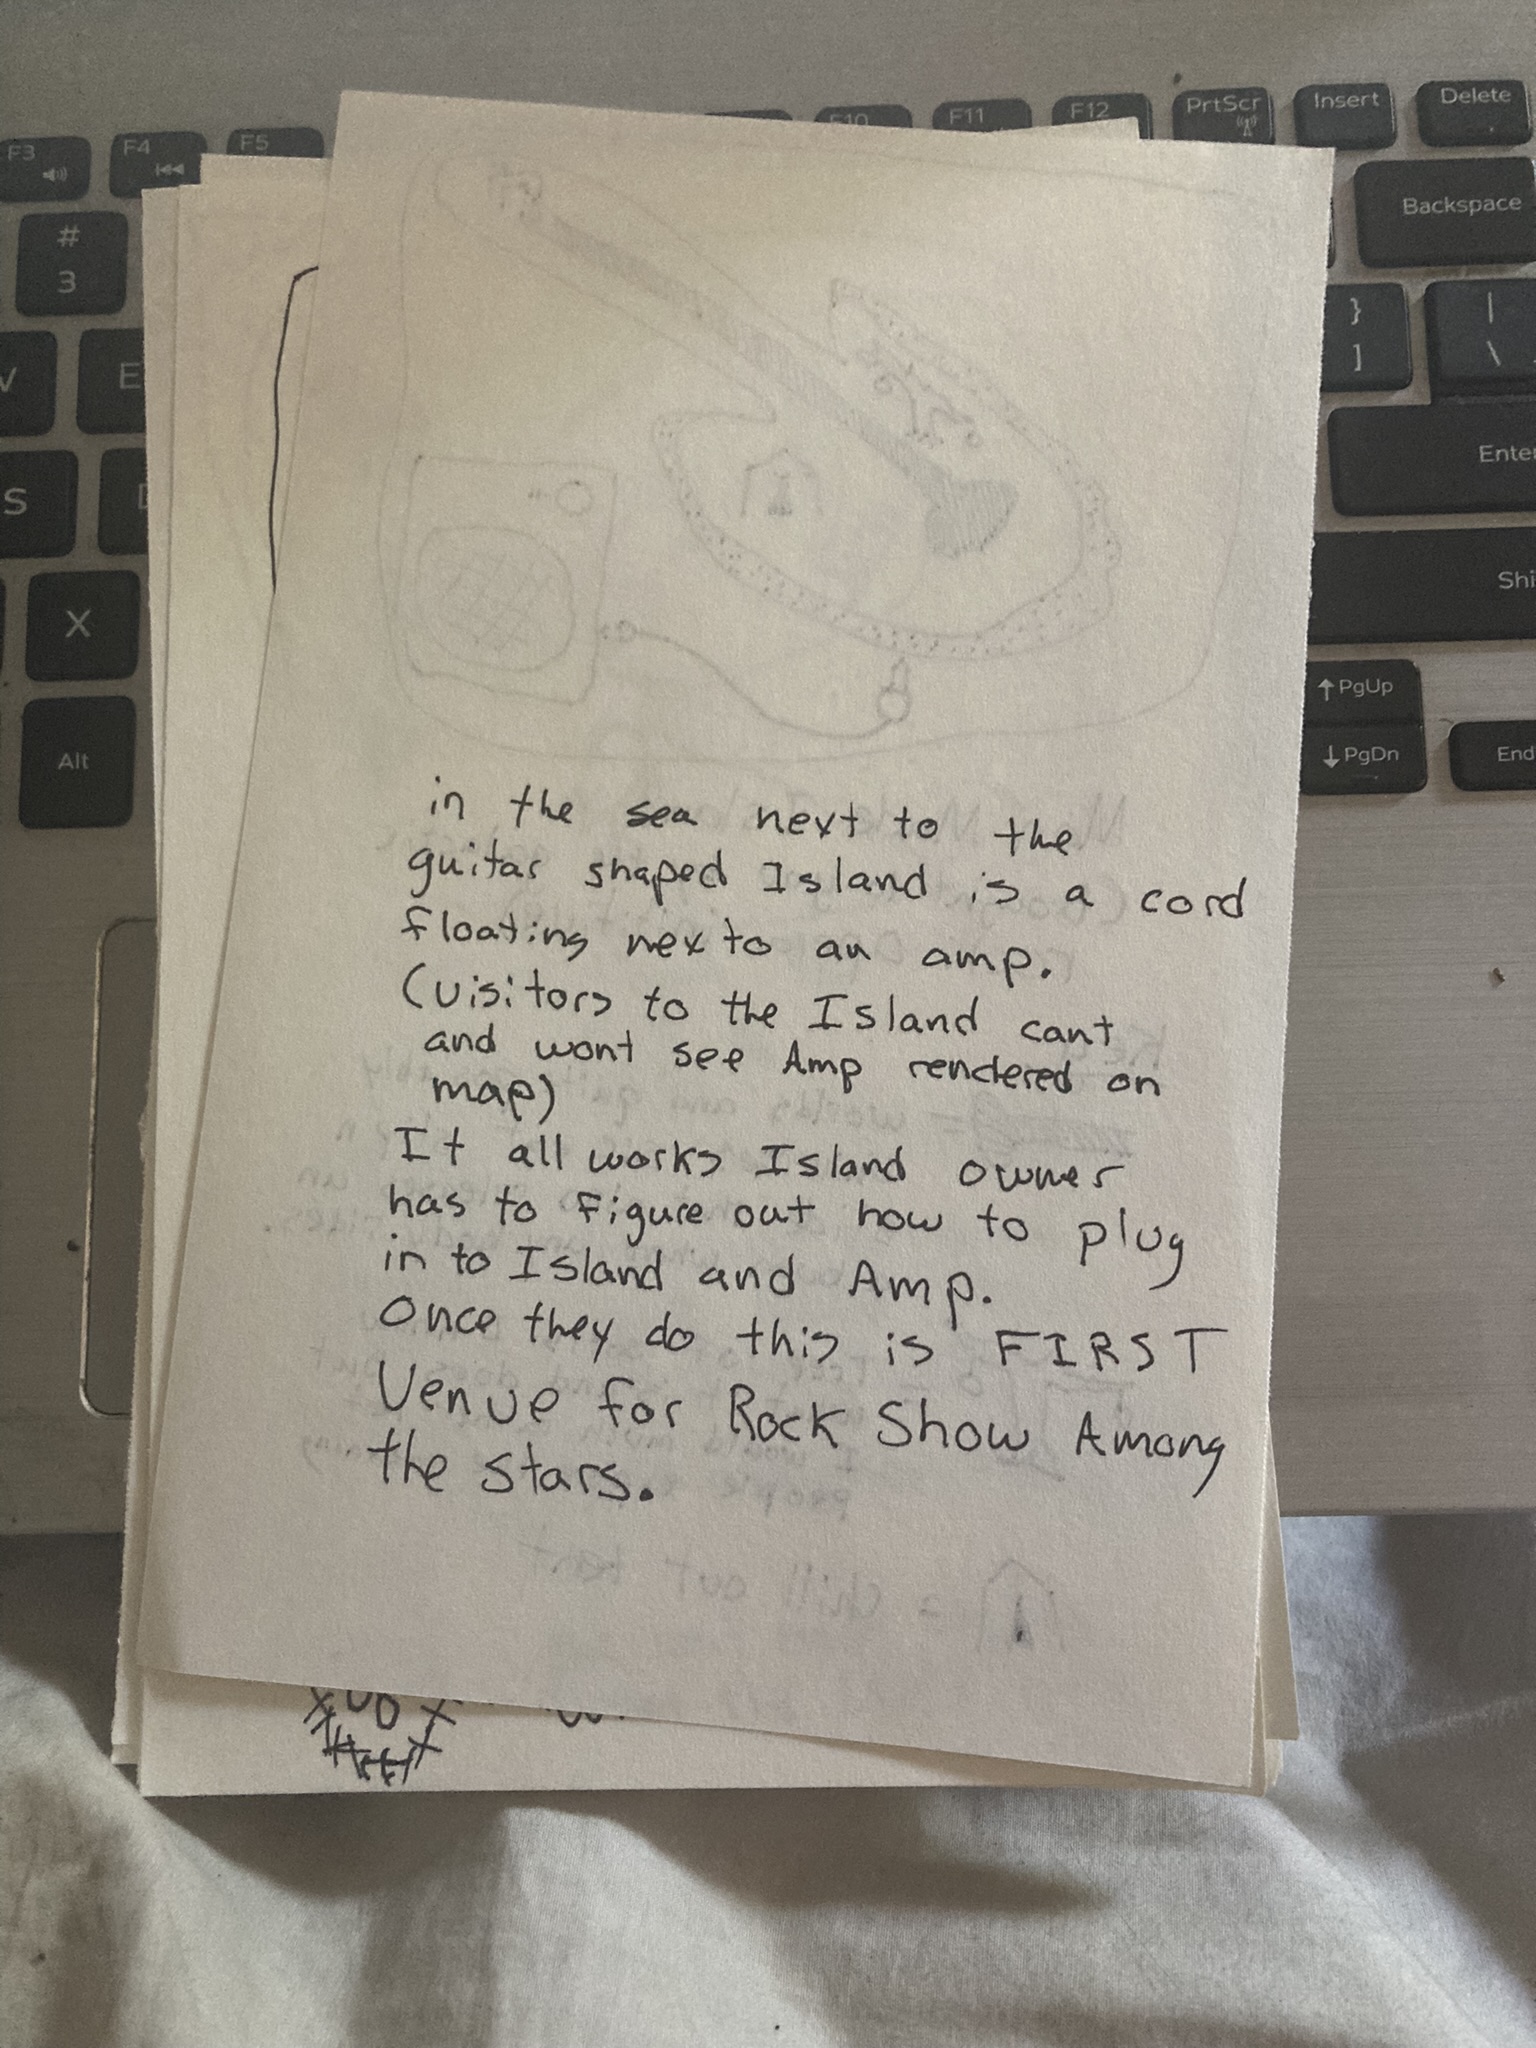 F3
F4
F5
F10
F11
F12
PrtScr
Insert
Delete
#
3
Backspace
E
}
]
|
\
Enter
S
X
Shi
Alt
PgUp
PgDn
End
in the sea next to the
guitar shaped Island is a cord
floating nex to an amp.
(visitors to the Island cant
and wont see Amp rendered on
map)
It all works Island owner
has to figure out how to plug
in to Island and Amp.
Once they do this is FIRST
Venue for Rock Show Among
the stars.
= chill out tent